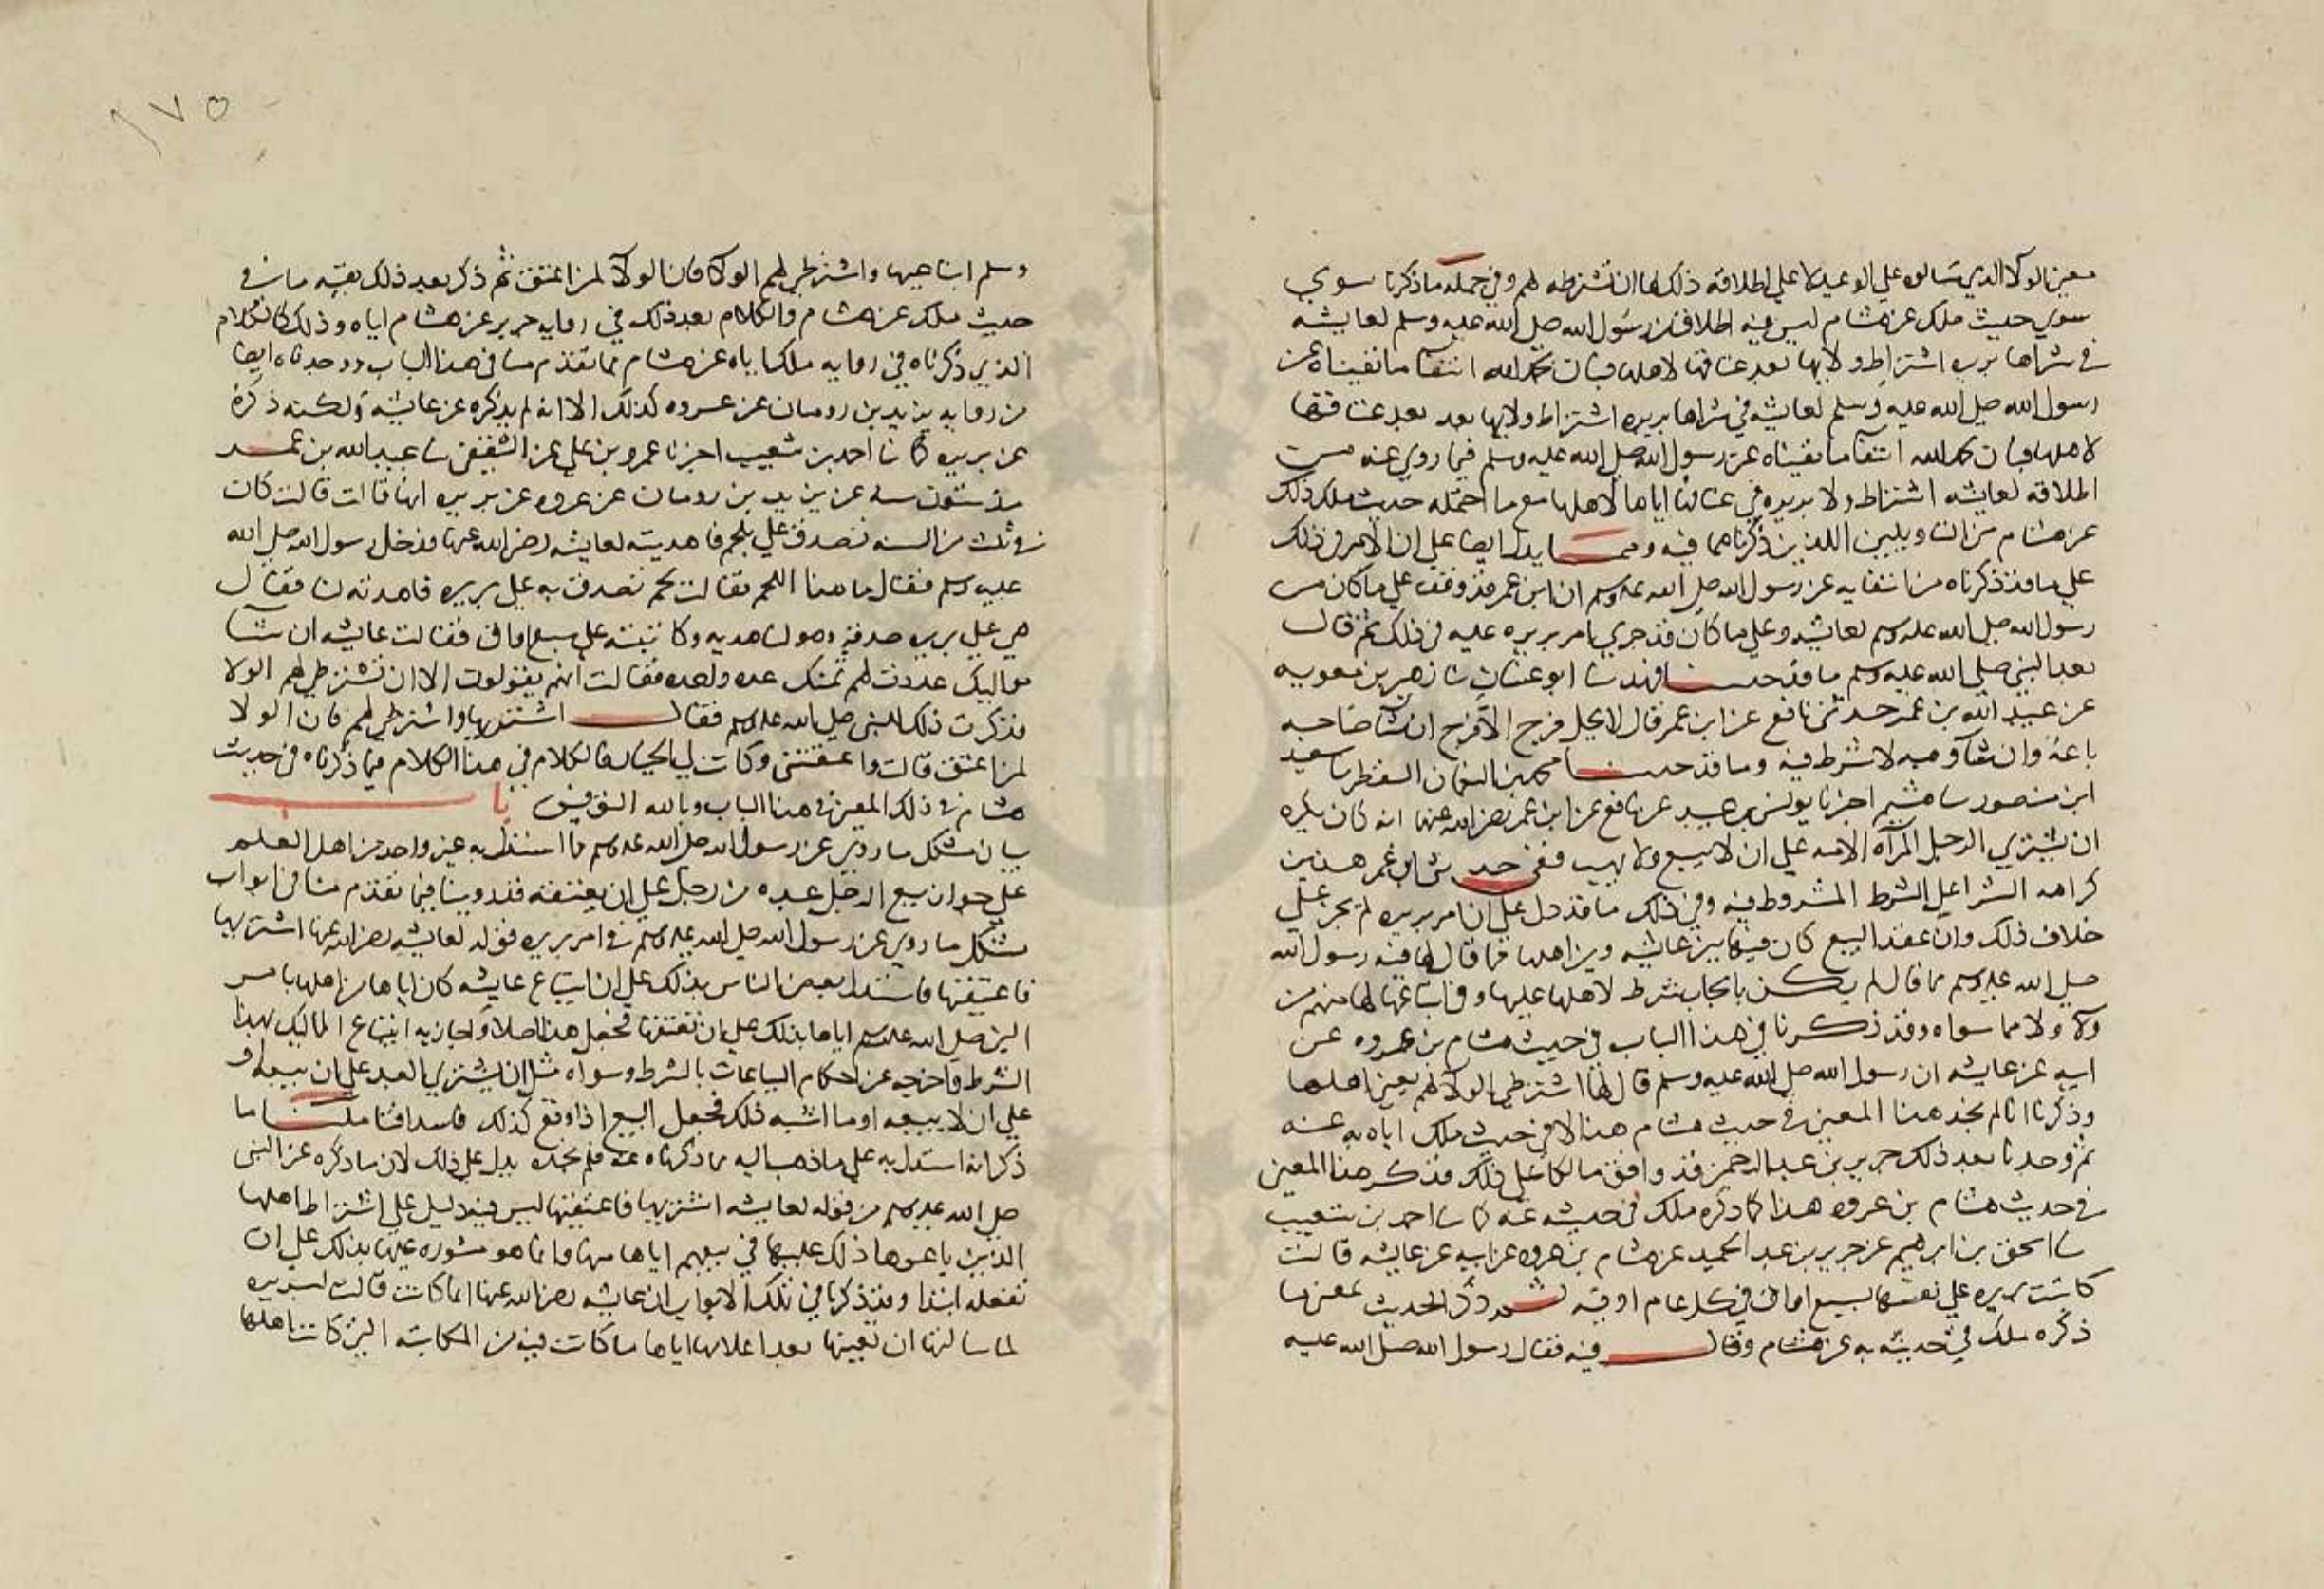 معنى الولا الذي تسالون علي الوعيد لا علي اطلاقه ذلك لها ان تشترطه لهم وفي جملة ما ذكرنا سوي
سوي حديث ملك عن هشام ليس فيه اطلاق من رسول الله صلى الله عليه وسلم لعايشه
في شراها بريره اشتراط ولايها بعد عتاقها لاهلها فبان بحمد الله انتفا ما نفيناه عن
رسول الله صلى الله عليه وسلم لعايشه في شراها بريره اشتراط ولايها بعد بعد عتاقتها
لاهلها فبان بحمد الله انتفا ما نفيناه عن رسول الله صلى الله عليه وسلم فيما روي عنه من
اطلاقه لعايشه اشتراط ولا بريره في عتاقها اياها لاهلها مع ما احتمله حديث ملك ذلك
عن هشام من التاويلين اللذين ذكرناهما فيه ومما يدل ايضا علي ان الامر في ذلك
علي ما قد ذكرناه من انتفايه عن رسول الله صلى الله عليه وسلم ان ابن عمر قد وقف علي ما كان من
رسول الله صلى الله عليه وسلم لعايشه وعلي ما كان قد جري بامر بريره عليه في ذلك ثم قال
بعد النبي صلى الله عليه وسلم ما قد حدثنا فهد نا ابو غسان نا زهير بن معويه
عن عبيد الله بن عمر حدثني نافع عن ابن عمر قال لا يحل فرج الا فرج ان شا صاحبه
باعه وان شا وهبه لا شرط فيه وما قد حدثنا محمد بن النعمان السقطي نا سعيد
ابن منصور نا هشيم اخبرنا يونس بن عبيد عن نافع عن ابن عمر رضى الله عنهما انه كان يكره
ان يشتري الرجل المرآه الامه علي ان لا يبيع ولا يهب ففي حديثي ابن عمر هذين
كراهه الشرا علي الشرط المشروط فيه وفي ذلك ما قد دل علي ان امر بريره لم يجر علي
خلاف ذلك وان عقد البيع كان فيها بين عايشه وبين اهلها فما قال لها فيه رسول الله
صلى الله عليه وسلم مما قال لم يكن بايجاب شرط لاهلها عليها وفي ابتياعها لها منهم من
ولآ ولا مما سواه وقد ذكرنا في هذا الباب في حديث هشام بن عروه عن
ابيه عن عايشه ان رسول الله صلى الله عليه وسلم قال لها اشترطي الولآ لهم يعني اهلها
وذكرنا انا لم نجد هذا المعنى في حديث هشام هذا الا في حديث ملك اياه به عنه
ثم وجدنا بعد ذلك جرير بن عبد الرحمن قد وافق مالكا علي ذلك فذكر هذا المعنى
في حديث هشام بن عروه هذا كما ذكره ملك في حديثه عنه كما نا احمد بن شعيب
نا اسحق بن ابرهيم عن جرير بن عبد الحميد عن هشام بن عروه عن ابيه عن عايشه قالت
كاتبت بريره علي نفسها بسبع اواق في كل عام اوقيه ثم ذكر الحديث بمعنى ما
ذكره ملك في حديثه به عن هشام وقال فيه فقال رسول الله صلى الله عليه
١٧٥
وسلم ابتاعيها واشترطي لهم الولآ فان الولآ لمن اعتق ثم ذكر بعد ذلك بقيه ما في
حديث ملك عن هشام فالكلام بعد ذلك في روايه جرير عن هشام اياه وذلك كالكلام
الذي ذكرناه في روايه ملك اياه عن هشام مما تقدم منا في هذا الباب ووجدناه ايضا
من روايه يزيد بن رومان عن عروه كذلك الا انه لم يذكره عن عايشه ولكنه ذكره
عن بريره كما نا احمد بن شعيب اخبرنا عمرو بن علي عن الثقفى نا عبيد الله بن عمر
عن يزيد بن رومان عن عروه عن بريره انها قالت كان
في ثلث من السنه تصدق علي بلحم فاهديته لعايشه رضى الله عنها فدخل رسول الله صلى الله
عليه وسلم فقال ما هذا اللحم فقالت لحم تصدق به علي بريره فاهدته لنا فقال
هي علي بريره صدقه وهو لنا هديه وكاتبته علي سبع اواق فقالت عايشه ان شا
مواليك عددت لهم ثمنك عده واحده فقالت انهم يقولون الا ان تشترطي لهم الولا
فذكرت ذلك للنبي صلى الله عليه وسلم فقال اشتريها واشترطي لهم فان الولا
لمن اعتق قالت واعتقتني وكان لي الخيار فالكلام في هذا الكلام فيما ذكرناه في حديث
هشام في ذلك المعنى في هذا الباب وبالله التوفيق باب
بيان مشكل ما روي عن رسول الله صلى الله عليه وسلم مما استدل به غير واحد من اهل العلم
علي جواز بيع الرجل عبده من رجل علي ان يعتقه قد روينا فيما تقدم منا في ابواب
مشكل ما روي عن رسول الله صلى الله عليه وسلم في امر بريره قوله لعايشه رضى الله عنها اشتريها
فاعتقيها فاستدل بعض الناس بذلك علي ان ابتياع عايشه كان اياها من اهلها بامر
النبي صلى الله عليه وسلم اياها بذلك علي ان تعتقها فجعل هذا اصلا واجاز به ابتياع المماليك بهذا
الشرط واخرجه عن احكام البياعات بالشرط وسواه مثل ان يشتري العبد علي ان يبيعه و
علي ان لا يبيعه او ما اشبه ذلك فجعل البيع اذا وقع كذلك فاسدا فتاملنا ما
ذكر انه استدل به علي ما ذهب اليه مما ذكرناه عنه فلم نجده يدل علي ذلك لان ما ذكره عن النبى
صلى الله عليه وسلم من قوله لعايشه اشتريها فاعتقيها ليس فيه دليل علي اشتراط اهلها
الذين باعوها ذلك عليها في بيعهم اياها منها وانما هو مشوره عليها بذلك علي ان
تفعله ابتدا وقد ذكرنا في تلك الابواب ان عايشه رضى الله عنها انما كانت قالت لبريره
لما سالتها ان تعينها بعد اعلامها اياها ما كانت فيه من المكاتبه التى كاتبها اهلها